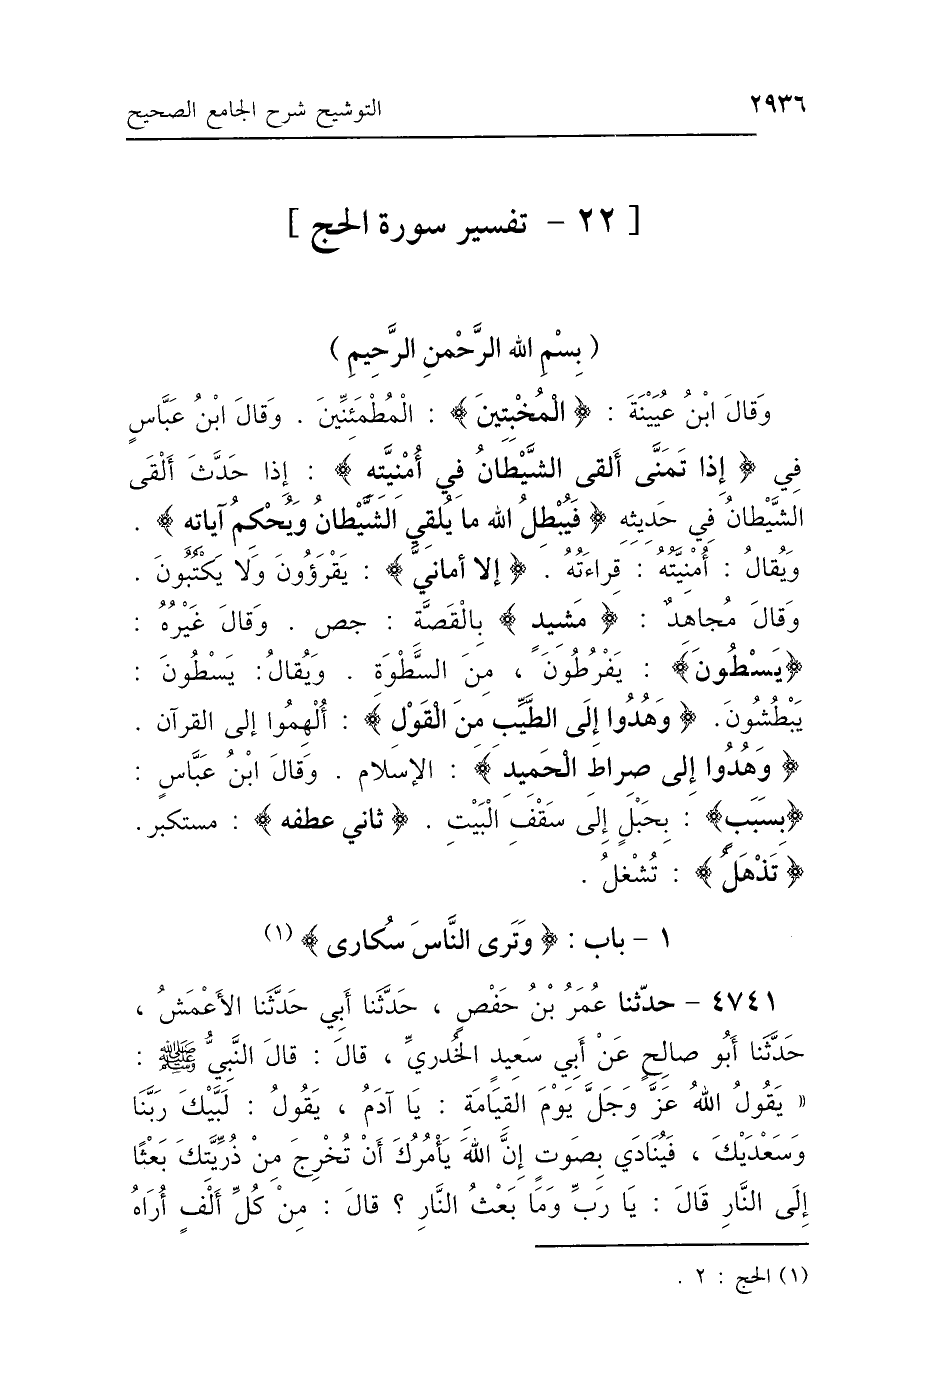 ٢٩٣٦ التوشيح شرح الجامع الصحيح
[ ٢٢ – تفسير سورة الحج ]
( بِسْمِ الله الرَّحْمنِ الرَّحِيمِ )
وَقالَ ابْنُ عُيَيْنَةَ : ﴿ الْمُخْبِتِينَ ﴾ : الْمُطْمَئِنِّينَ . وَقالَ ابْنُ عَبَّاسٍ
فِي ﴿ إِذا تَمَنَّى أَلقى الشَّيْطانُ فِي أُمْنِيَّتِهِ ﴾ : إِذا حَدَّثَ أَلْقَى
الشَّيْطانُ فِي حَدِيثِهِ ﴿ فَيُبْطِلُ الله ما يُلقِي الشَّيْطانُ وَيُحْكِمُ آياتِهِ ﴾ .
وَيُقالُ : أُمْنِيَّتُهُ : قِراءَتُهُ . ﴿ إِلا أمانيَّ ﴾ : يَقْرَؤُونَ وَلا يَكْتُبُونَ .
وَقالَ مُجاهِدٌ : ﴿ مَشِيدٍ ﴾ بِالْقَصَّةِ : جِصٍ . وَقالَ غَيْرُهُ :
﴿يَسْطُونَ﴾ : يَفْرُطُونَ ، مِنَ السَّطْوَةِ . وَيُقالُ: يَسْطُونَ :
يَبْطُشُونَ. ﴿ وَهُدُوا إِلَى الطَّيِّبِ مِنَ الْقَوْلِ ﴾ : أُلْهِمُوا إِلى القرآن .
﴿ وَهُدُوا إِلى صِراطِ الْحَمِيدِ ﴾ : الإسلام . وَقالَ ابْنُ عَبَّاسٍ :
﴿بِسَبَبٍ﴾ : بِحَبْلٍ إِلى سَقْفِ الْبَيْتِ . ﴿ ثاني عطفه ﴾ : مستكبر.
﴿ تَذْهَلُ ﴾ : تُشْغلُ .
١ – باب : ﴿ وَتَرى النَّاسَ سُكارى ﴾ (١)
٤٧٤١ – حدّثنا عُمَرُ بْنُ حَفْصٍ ، حَدَّثَنا أَبِي حَدَّثَنا الأَعْمَشُ ،
حَدَّثَنا أَبُو صالِحٍ عَنْ أَبِي سَعِيدٍ الخُدرِيِّ ، قالَ : قالَ النَّبِيُّ ﷺ :
« يَقُولُ اللهُ عَزَّ وَجَلَّ يَوْمَ القِيَامَةِ : يَا آدَمُ ، يَقُولُ : لَبَّيْكَ رَبَّنَا
وَسَعْدَيْكَ ، فَيُنَادَي بِصَوتٍ إِنَّ اللهَ يَأْمُرُكَ أَنْ تُخْرِجَ مِنْ ذُرِّيَّتِكَ بَعْثًا
إِلَى النَّارِ قَالَ : يَا رَبِّ وَمَا بَعْثُ النَّارِ ؟ قالَ : مِنْ كُلِّ أَلْفٍ أُرَاهُ
(١) الحج : ٢ .